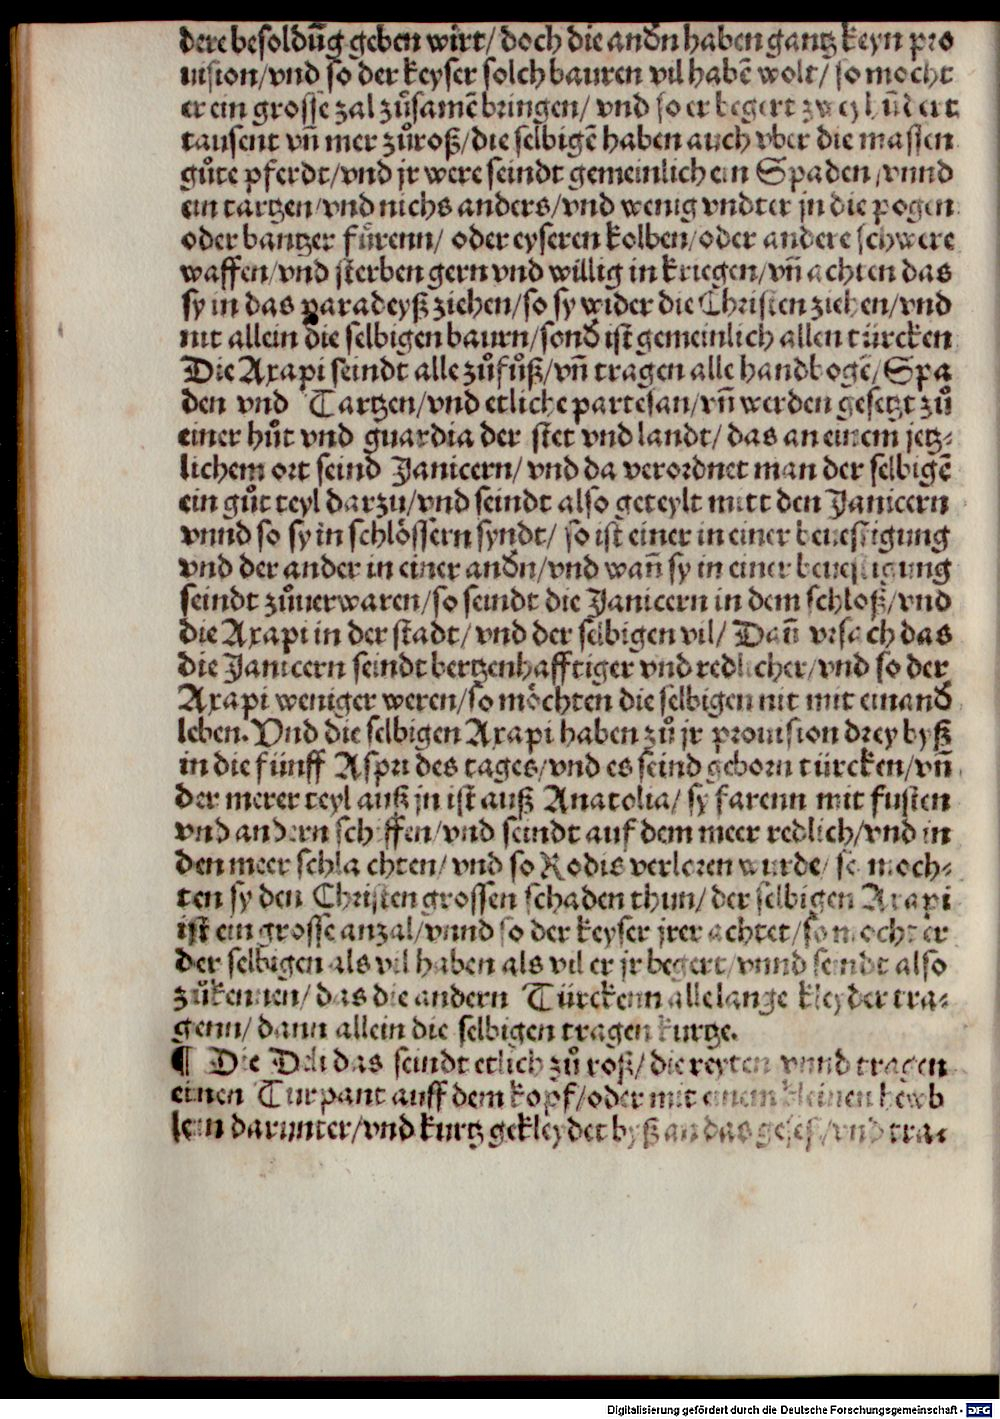 dere besoldūg geben wirt/ doch die andn̄ haben gantz keyn pro
uision/vnd so der keyser solch bauren vil habē wolt/ so mocht
er ein grosse zal zůsamē bringen/ vnd so er begert zwey hūdert
tausent vn̄ mer zůroß/die selbigē haben auch vber die massen
gůte pferdt/vnd jr were seindt gemeinlich ein Spaden/vnnd
ein tartzen/vnd nichs anders/vnd wenig vndter jn die pogen
oder bantzer fürenn/ oder eyseren kolben/oder andere schwere
waffen/vnd sterben gern vnd willig in kriegen/vn̄ achten das
sy in das paradeyß ziehen/so sy wider die Christen ziehen/vnd
nit allein die selbigen baurn/sond̄ ist gemeinlich allen türcken
Die Axapi seindt alle zůfůß/vn̄ tragen alle handbogē/Spa
den vnd Tartzen/vnd etliche partesan/vn̄ werden gesetzt zů
einer hůt vnd guardia der stet vnd landt/ das an einem jetz-
lichem ort seind Janicern/ vnd da verordnet man der selbigē
ein gůt teyl darzu/vnd seindt also geteylt mitt den Janicern
vnnd so sy in schlössern syndt/ so ist einer in einer beuestigung
vnd der ander in einer andn̄/vnd wan̄ sy in einer beuestigung
seindt zůuerwaren/so seindt die Janicern in dem schloß/vnd
die Axapi in der stadt/ vnd der selbigen vil/ Dan̄ vrsach das
die Janicern seindt hertzenhafftiger vnd redlicher/vnd so der
Axapi weniger weren/so möchten die selbigen nit mit einand̄
leben. Vnd die selbigen Axapi haben zů jr prouision drey byß
in die fünff Aspri des tages/vnd es seind geborn türcken/vn̄
der merer teyl auß jn ist auß Anatolia/ sy farenn mit fusten
vnd andern schiffen/vnd seindt auf dem meer redlich/vnd in
den meer schlachten/ vnd so Rodis verloren wurde/ so moch-
ten sy den Christen grossen schaden thun/ der selbigen Axapi
ist ein grosse anzal/vnnd so der keyser jrer achtet/so mocht er
der selbigen als vil haben als vil er jr begert/vnnd seindt also
zůkennen/ das die andern Türckenn alle lange kleyder tra-
genn/ dann allein die selbigen tragen kurtze.
¶ Die Delidas seindt etlich zů roß/ die reyten vnnd tragen
einen Turpant auff dem kopf/oder mit einem kleinen hewb
lein darunter/vnd kurtz gekleydet byß an das geseß/vnd tra-
Digitalisierung gefördert durch die Deutsche Forschungsgemeinschaft - DFG